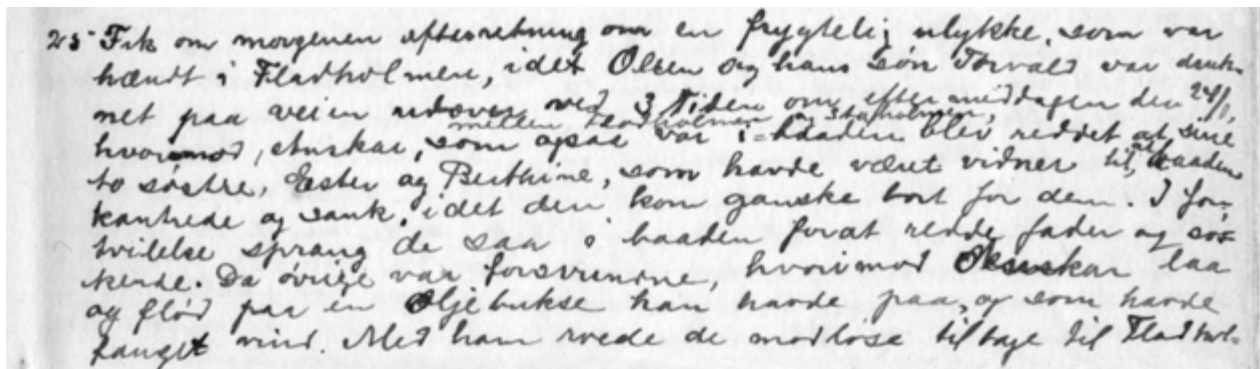 25 Fik om morgenen efterretning om en frygtelig ulykke, som var
hændt i Fladholmen, idet Olsen og hans søn Torvald var druk-
net paa veien udover ved 3 Tiden om eftermiddagen den 24/1,
mellem Fladholmen og
hvorimod, som ogsaa var i baaden blev reddet af sine
to søstre, Ester og Berthine, som havde været vidner til, at baaden
kantrede og sank, idet den kom ganske bort for dem. I for-
tvilelse sprang de saa i baaden forat redde fader og søs-
kende. De øvrige var forsvundne, hvorimod laa
og flød paa en Oljebukse han havde paa, og som havde
fanget vind. Med ham roede de modløse tilbage til Fladhol-